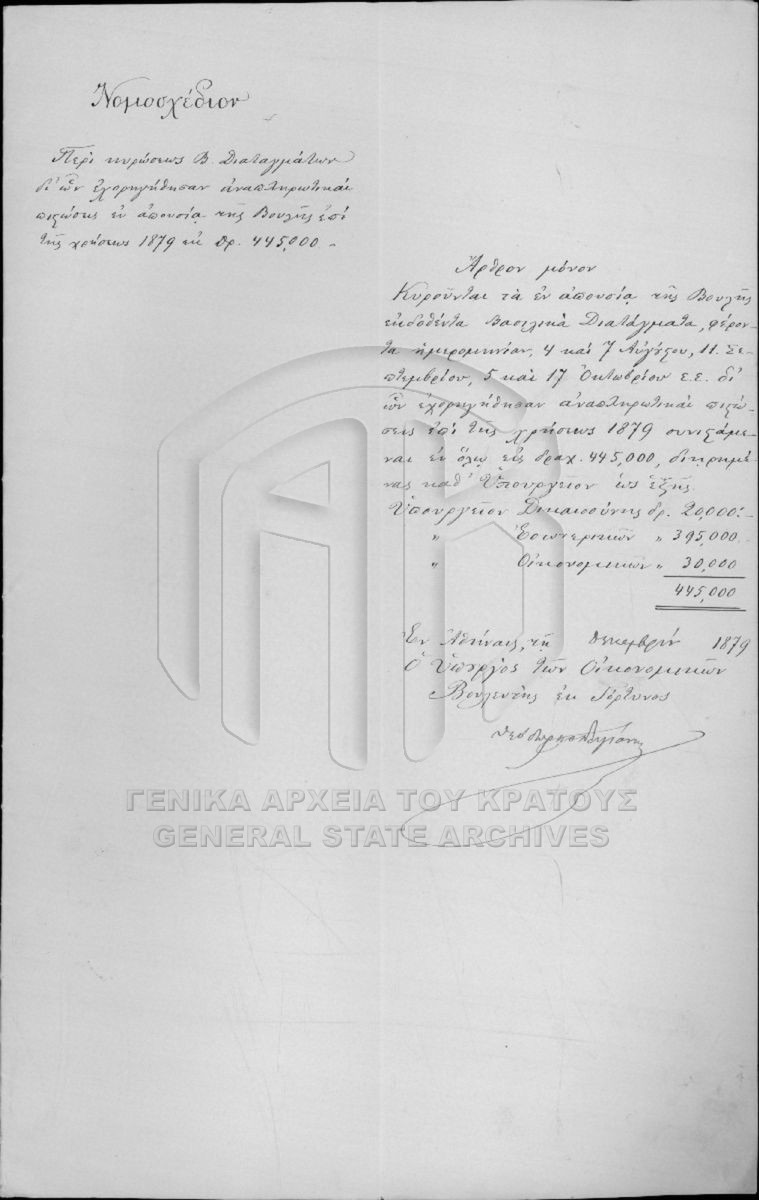 Νομοσχέδιον
Περὶ κυρώσεως Β. Διαταγμάτων
δι' ὧν ἐχορηγήθησαν ἀναπληρωτικαὶ
πιστώσεις ἐν ἀπουσίᾳ τῆς Βουλῆς ἐπὶ
τῆς χρήσεως 1879 ἐκ Δρ. 445,000.-
Ἄρθρον μόνον
Κυροῦνται τὰ ἐν ἀπουσίᾳ τῆς Βουλῆς
ἐκδοθέντα Βασιλικὰ Διατάγματα, φέρον-
τα ἡμερομηνίαν, 4 καὶ 7 Αὐγύστου, 11 Σε-
πτεμβρίου, 5 καὶ 17 Ὀκτωβρίου ἐ.ἔ. δι'
ὧν ἐχορηγήθησαν ἀναπληρωτικαὶ πιστώ-
σεις ἐπὶ τῆς χρήσεως 1879 συνιστάμε-
ναι ἐν ὅλῳ εἰς δραχ. 445,000, διῃρημέ-
νας καθ' Ὑπουργεῖον ὡς ἑξῆς.
Ὑπουργεῖον Δικαιοσύνης δρ. 20,000.-
" Ἐσωτερικῶν " 395,000.-
" Οἰκονομικῶν " 30,000
445,000
Ἐν Ἀθήναις, τῇ Δεκεμβρίου 1879
Ὁ Ὑπουργὸς τῶν Οἰκονομικῶν
Βουλευτὴς ἐκ Γόρτυνος
ΓΕΝΙΚΑ ΑΡΧΕΙΑ ΤΟΥ ΚΡΑΤΟΥΣ
GENERAL STATE ARCHIVES